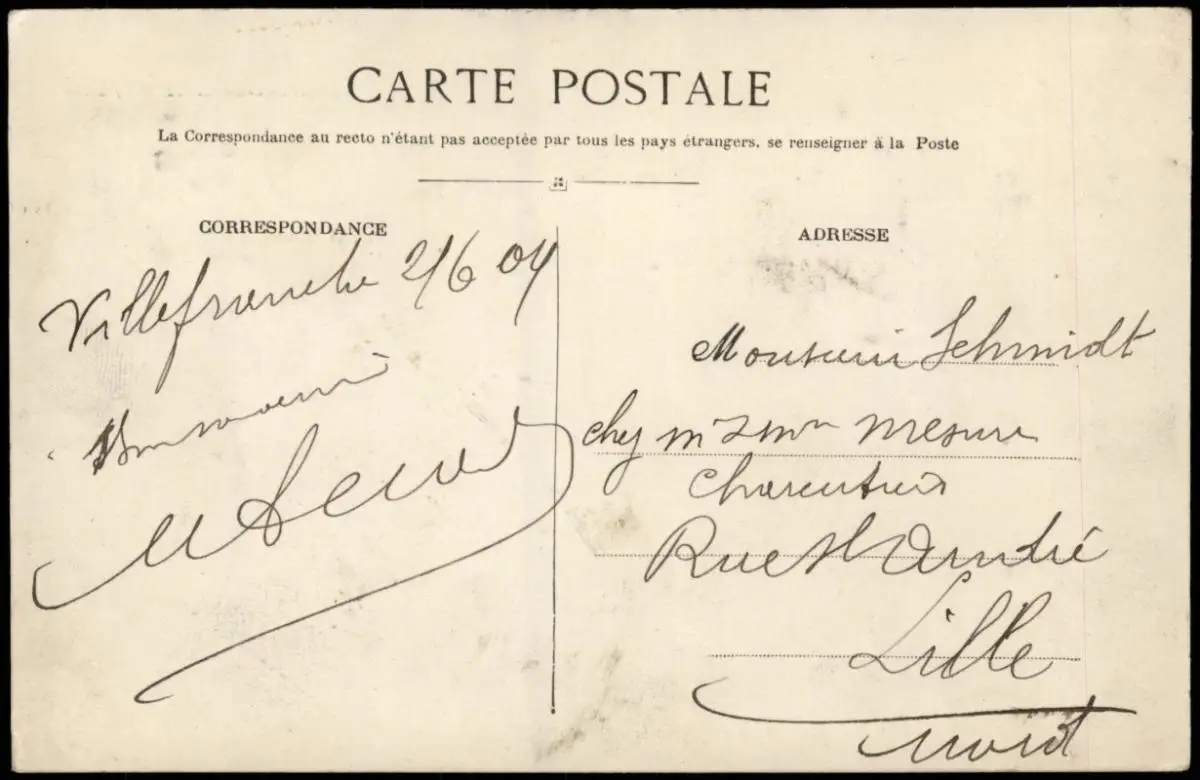 CARTE POSTALE
La Correspondance au recto n'étant pas acceptée par tous les pays étrangers, se renseigner à la Poste
CORRESPONDANCE
Villefranche 2/6 04
Bon souvenir
ADRESSE
Monsieur Schmidt
chez mr mesure
Charcutier
Rue St André
Lille
Nord